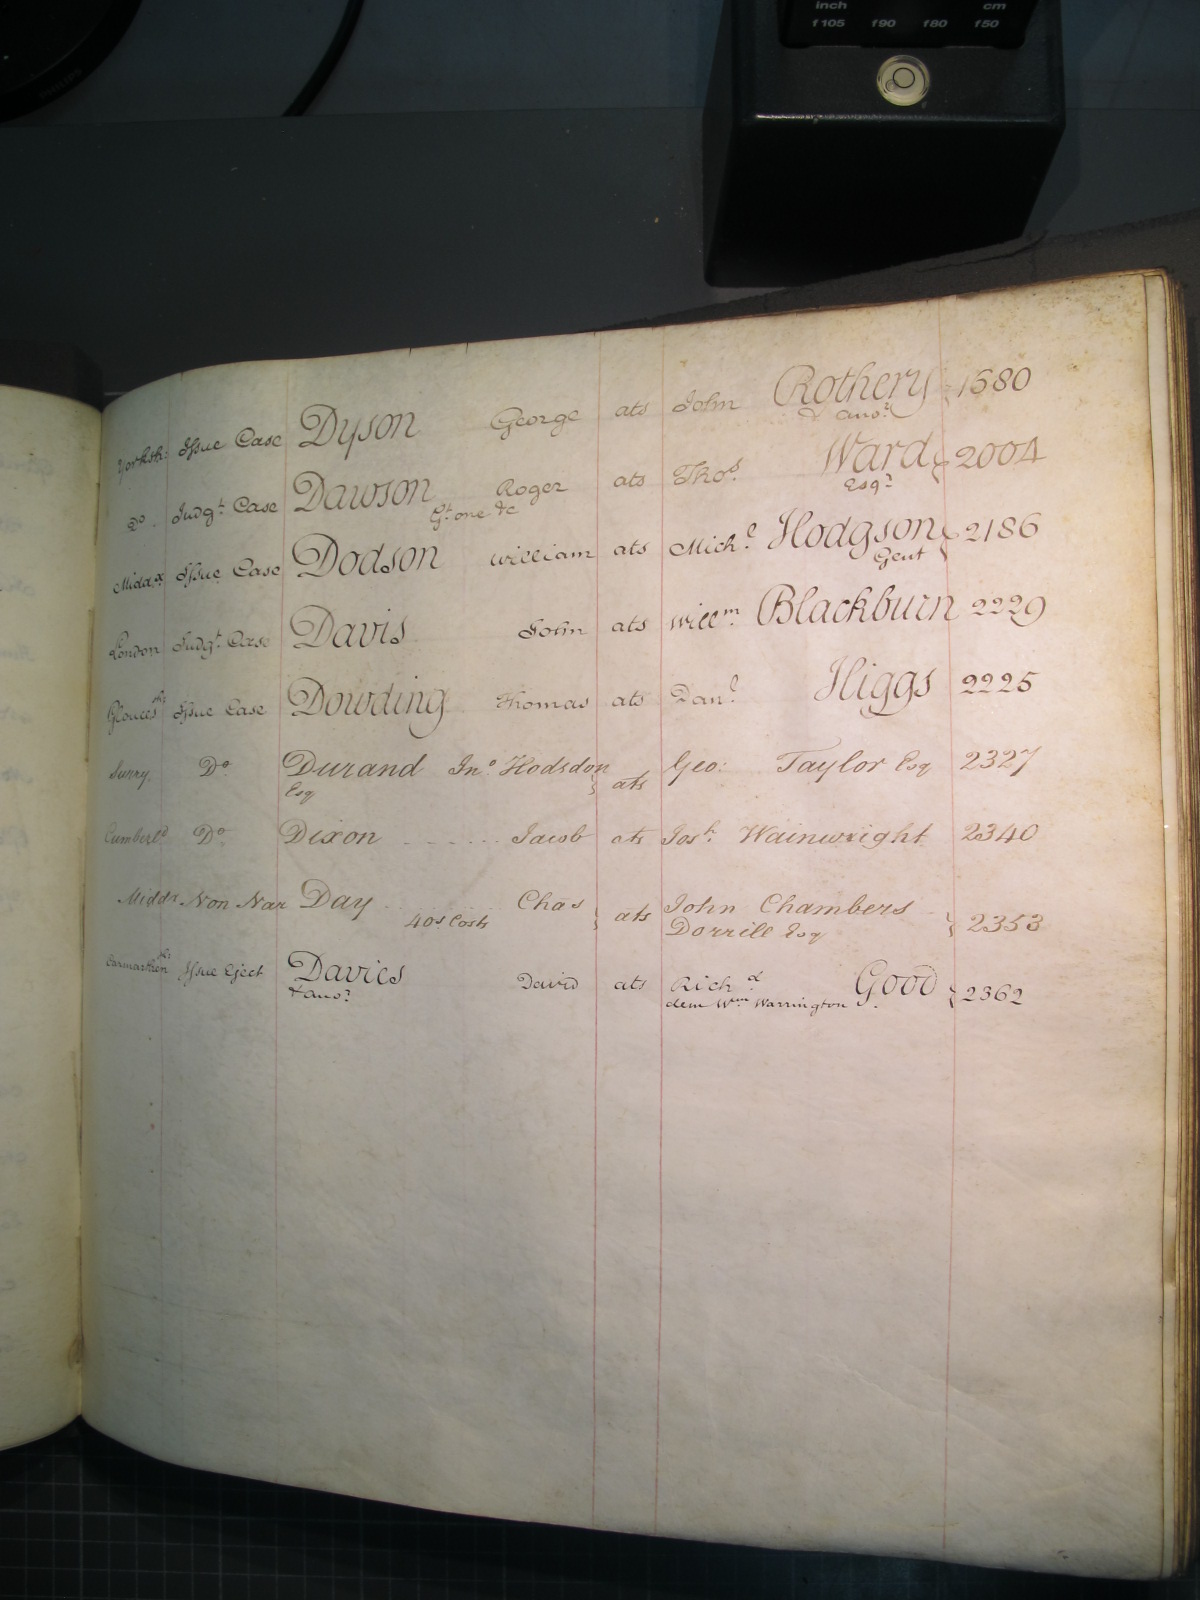 PHILIPS
inch cm
f105 f90 f80 f50
Yorksh: Issue Case Dyson George ats John Rothery 1680
& anor
Do. Judgt Case Dawson Roger ats Thos. Ward 2004
Gt one &c Esqr
Middx Issue Case Dodson William ats Michl Hodgson 2186
Gent
London Judgt Case Davis John ats Willm Blackburn 2229
Glouces Issue Case Dowding Thomas ats Danl Higgs 2225
Surry. Do Durand Jno Hodsdon ats Geo: Taylor Esq 2327
Esq
Cumberld Do Dixon ........ Jacob ats Josh Wainwright 2340
Middx Non Nar Day Chas ats John Chambers 2353
40s Costs Dorrill Esq
Carmarthen Issue Eject Davies David ats Richd Good 2362
& anor dem Wm Warrington